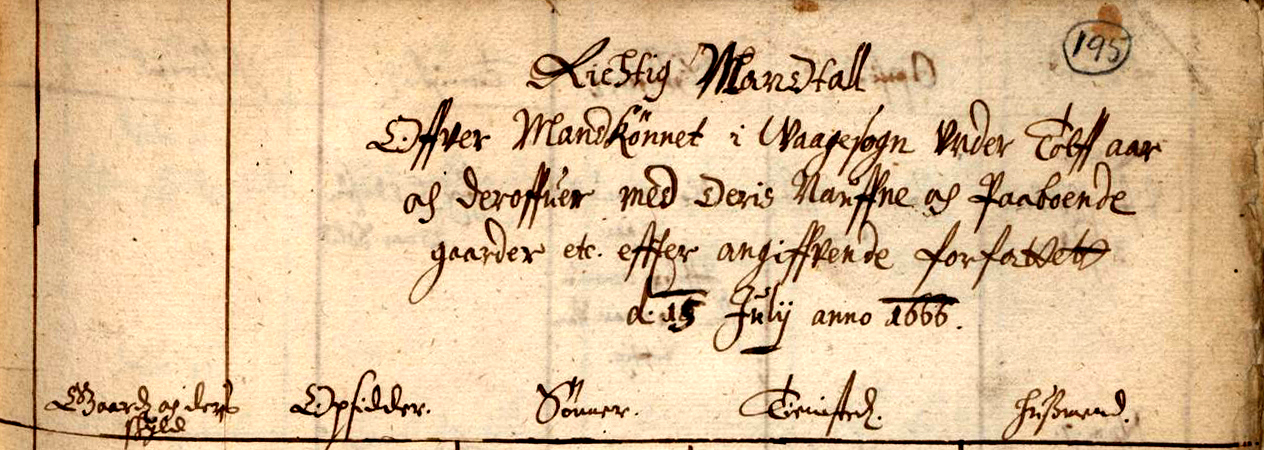 195
Richtig Mandtall
Offver Mandkönnet i Waagesogn vnder Tolff aar
och deroffuer med Deris Nauffne och Paaboende
gaarder etc. effter angiffvende forfattett
d. 15 Julij anno 1666.
Gaard och ders Opsidder. Sönner. Tienisted. Hußmend.
skyld